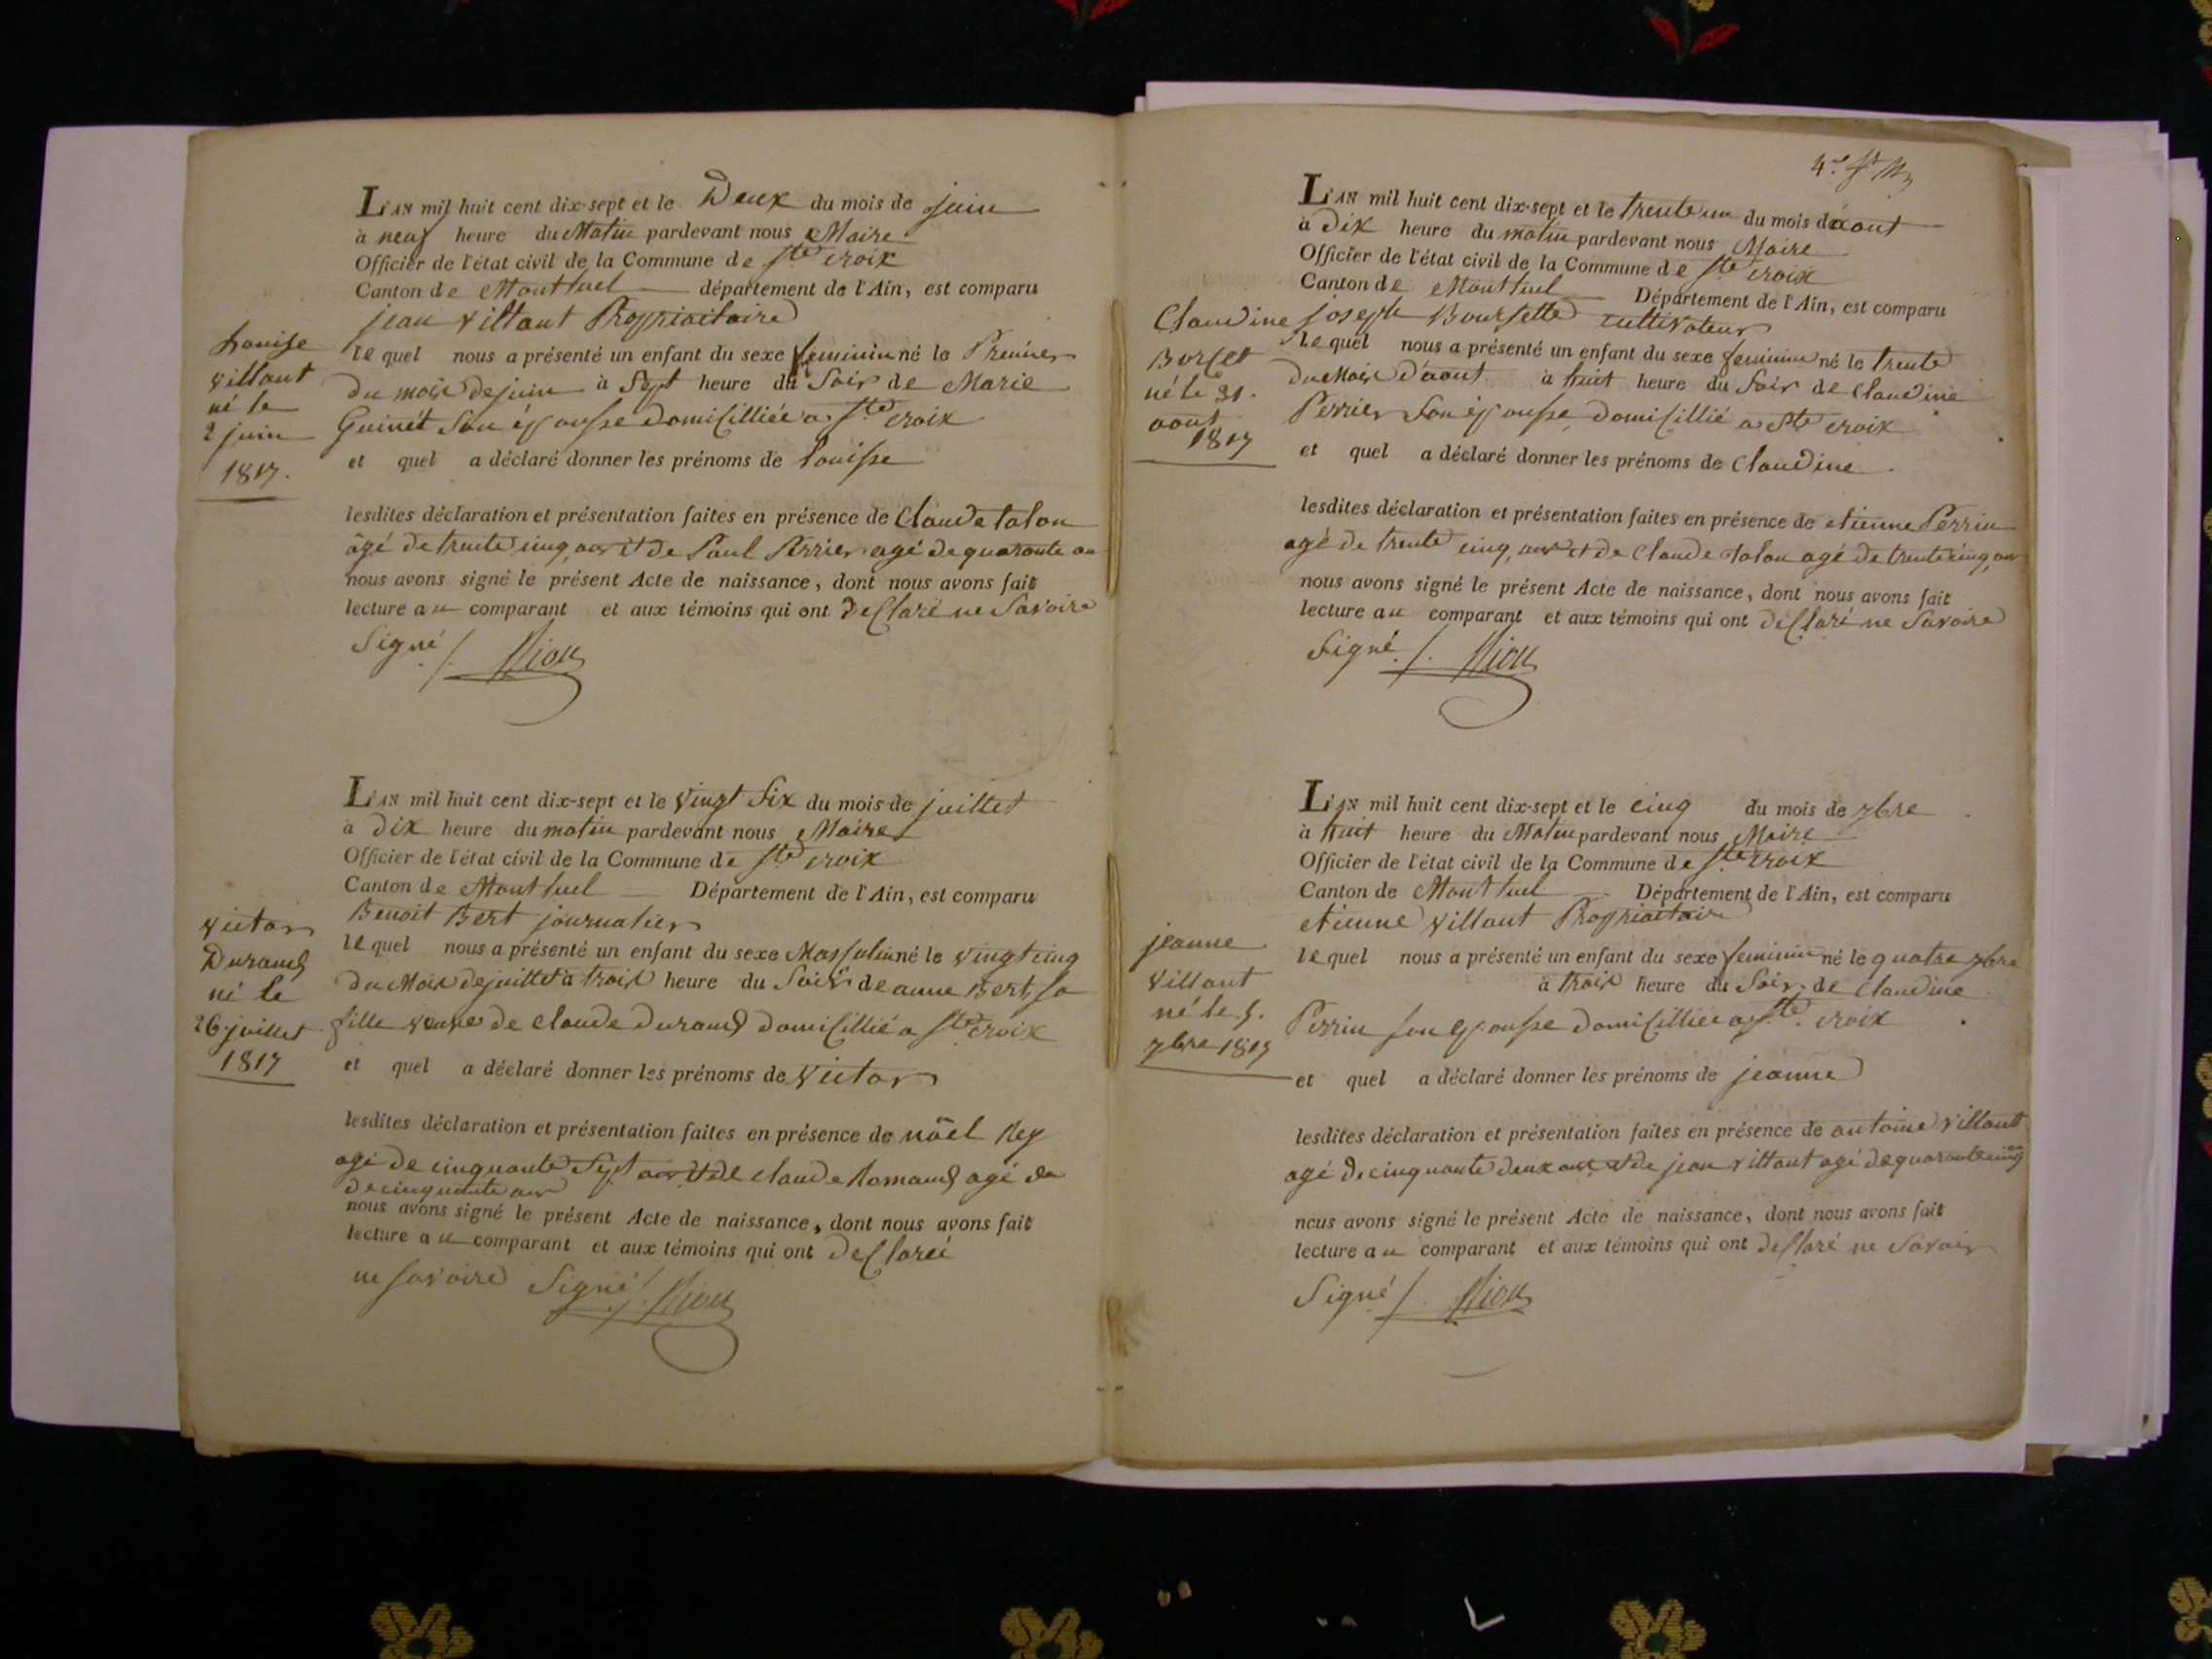 L'AN mil huit cent dix-sept et le Deux du mois de juin
à neuf heure du Matin pardevant nous Maire
Officier de l'état civil de la Commune de Ste croix
Canton de Montluel département de l'Ain, est comparu
jean villant Propriaitaire
Louise
villant
né le
2 juin
1817.
le quel nous a présenté un enfant du sexe feminin né le Premier
du mois de juin à Sept heure du Soir de Marie
Guinet Son épousse domicilliée a Ste croix
et quel a déclaré donner les prénoms de louisse
lesdites déclaration et présentation faites en présence de Claude talon
âgé de trente cinq ans et de Paul Perrier agé de quarante an
nous avons signé le présent Acte de naissance, dont nous avons fait
lecture au comparant et aux témoins qui ont declaré ne Savoire
Signé
L'AN mil huit cent dix-sept et le vingt Six du mois de juillet
à dix heure du matin pardevant nous Maire
Officier de l'état civil de la Commune de Ste croix
Canton de Montluel Département de l'Ain, est comparu
Benoit Bert journalier
victor
Durand
né le
26 juillet
1817
le quel nous a présenté un enfant du sexe Masculin né le vingt cinq
du Mois de juillet à trois heure du Soir de anne Bert sa
fille veuve de claude durand domicillié a Ste croix
et quel a déclaré donner les prénoms de victor
lesdites déclaration et présentation faites en présence de nöel Rey
agé de cinquante Sept ans et de claude Romand agé de
de cinquante ans
nous avons signé le présent Acte de naissance, dont nous avons fait
lecture au comparant et aux témoins qui ont declareé
ne savoire Signé
L'AN mil huit cent dix-sept et le trente un du mois d'aout
à dix heure du matin pardevant nous Maire
Officier de l'état civil de la Commune de Ste croix
Canton de Montluel Département de l'Ain, est comparu
joseph Boursette cultivateur
Claudine
Borset
né le 31.
aout
1817
le quel nous a présenté un enfant du sexe feminin né le trente
du Mois d'aout à huit heure du Soir de claudine
Perrier Son épousse domicillié a Ste croix
et quel a déclaré donner les prénoms de Claudine
lesdites déclaration et présentation faites en présence de etienne Perrin
agé de trente cinq, ans et de Claude talon agé de trente cinq, ans
nous avons signé le présent Acte de naissance, dont nous avons fait
lecture au comparant et aux témoins qui ont declaré ne Savoire
Signé
L'AN mil huit cent dix-sept et le cinq du mois de 7bre
à huit heure du Matin pardevant nous Maire
Officier de l'état civil de la Commune de Ste croix
Canton de Montluel Département de l'Ain, est comparu
etienne villant Propriaitaire
jeanne
villant
né le 5.
7bre 1817
le quel nous a présenté un enfant du sexe feminin né le quatre 7bre
à trois heure du Soir de Claudine
Perrin son epousse domicilliée a Ste. croix
et quel a déclaré donner les prénoms de jeanne
lesdites déclaration et présentation faites en présence de antoine villant
agé de cinquante deux ans et de jean villant agé de quarante cinq
nous avons signé le présent Acte de naissance, dont nous avons fait
lecture au comparant et aux témoins qui ont declaré ne Savoir
Signé